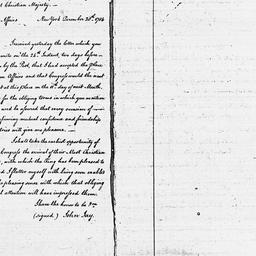 t Christian Majesty.
Affairs. New York December 20th. 1784
I received yesterday the letter which you
write on the 24th. Instant, two days before
by the Post, that I had accepted the place
n Affairs and that Congress would the next
at this Place on the 10th. day of next Month.
for the obliging terms in which you mention
and be assured that every occasion of
firming mutual confidence and friendship
tries will give me pleasure.
I shall take the earliest opportunity of
Congress the arrival of their Most Christian
, with which the King has been pleased to
d I flatter myself with being soon enabled
the pleasing sense with which that obliging
d attention will have impressed them.
I have the honor to be &ca
(signed) John Jay.